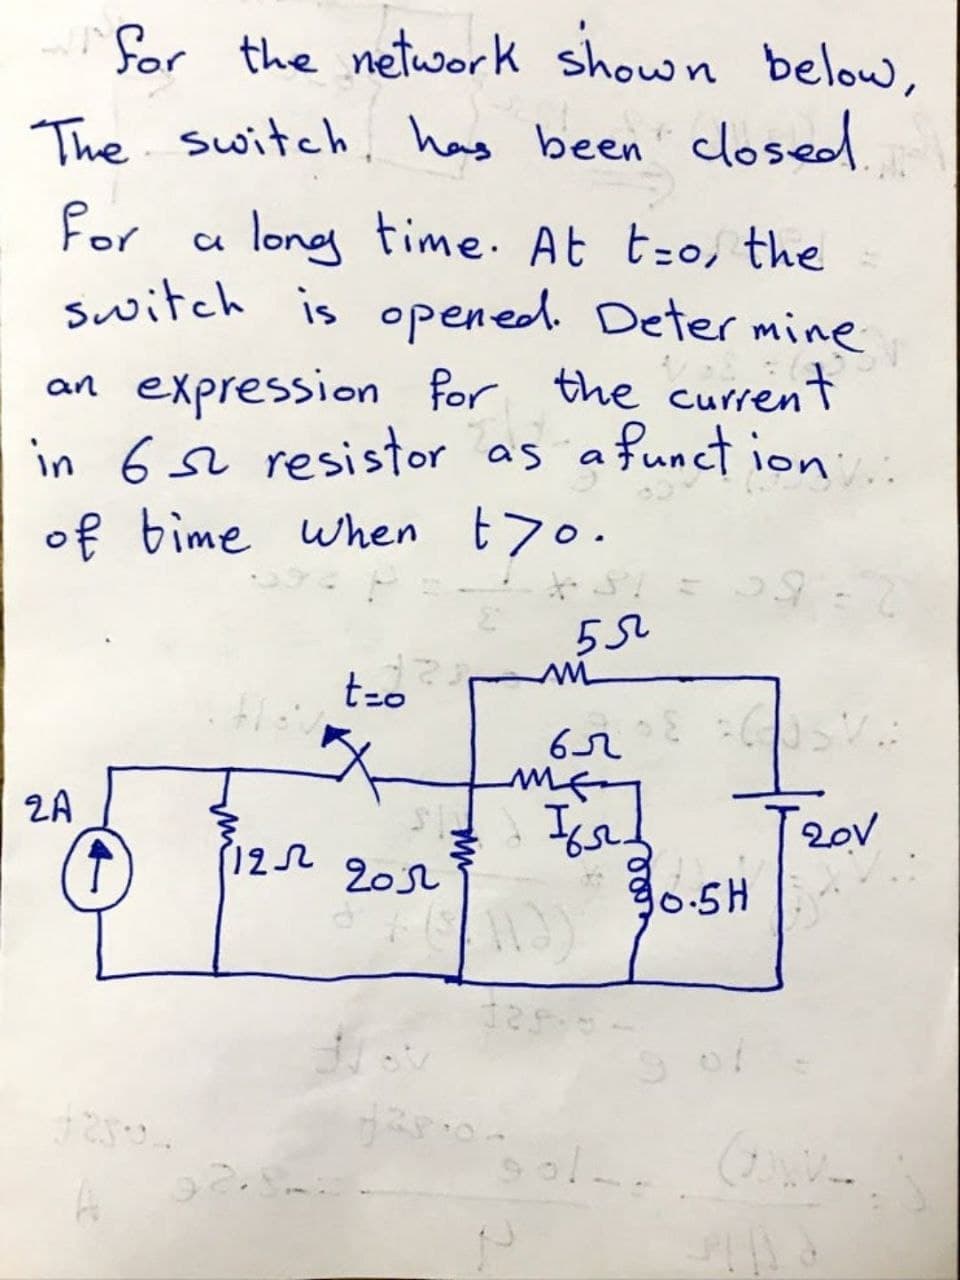 for the network shown below,
The switch has been closed
for a long time. At t=0, the
switch is opened. Determine
an expression for the current
in 6Ω resistor as a function
of time when t>0.
5Ω
t=0
6Ω
2A
I6Ω
20V
12Ω
20Ω
0.5H